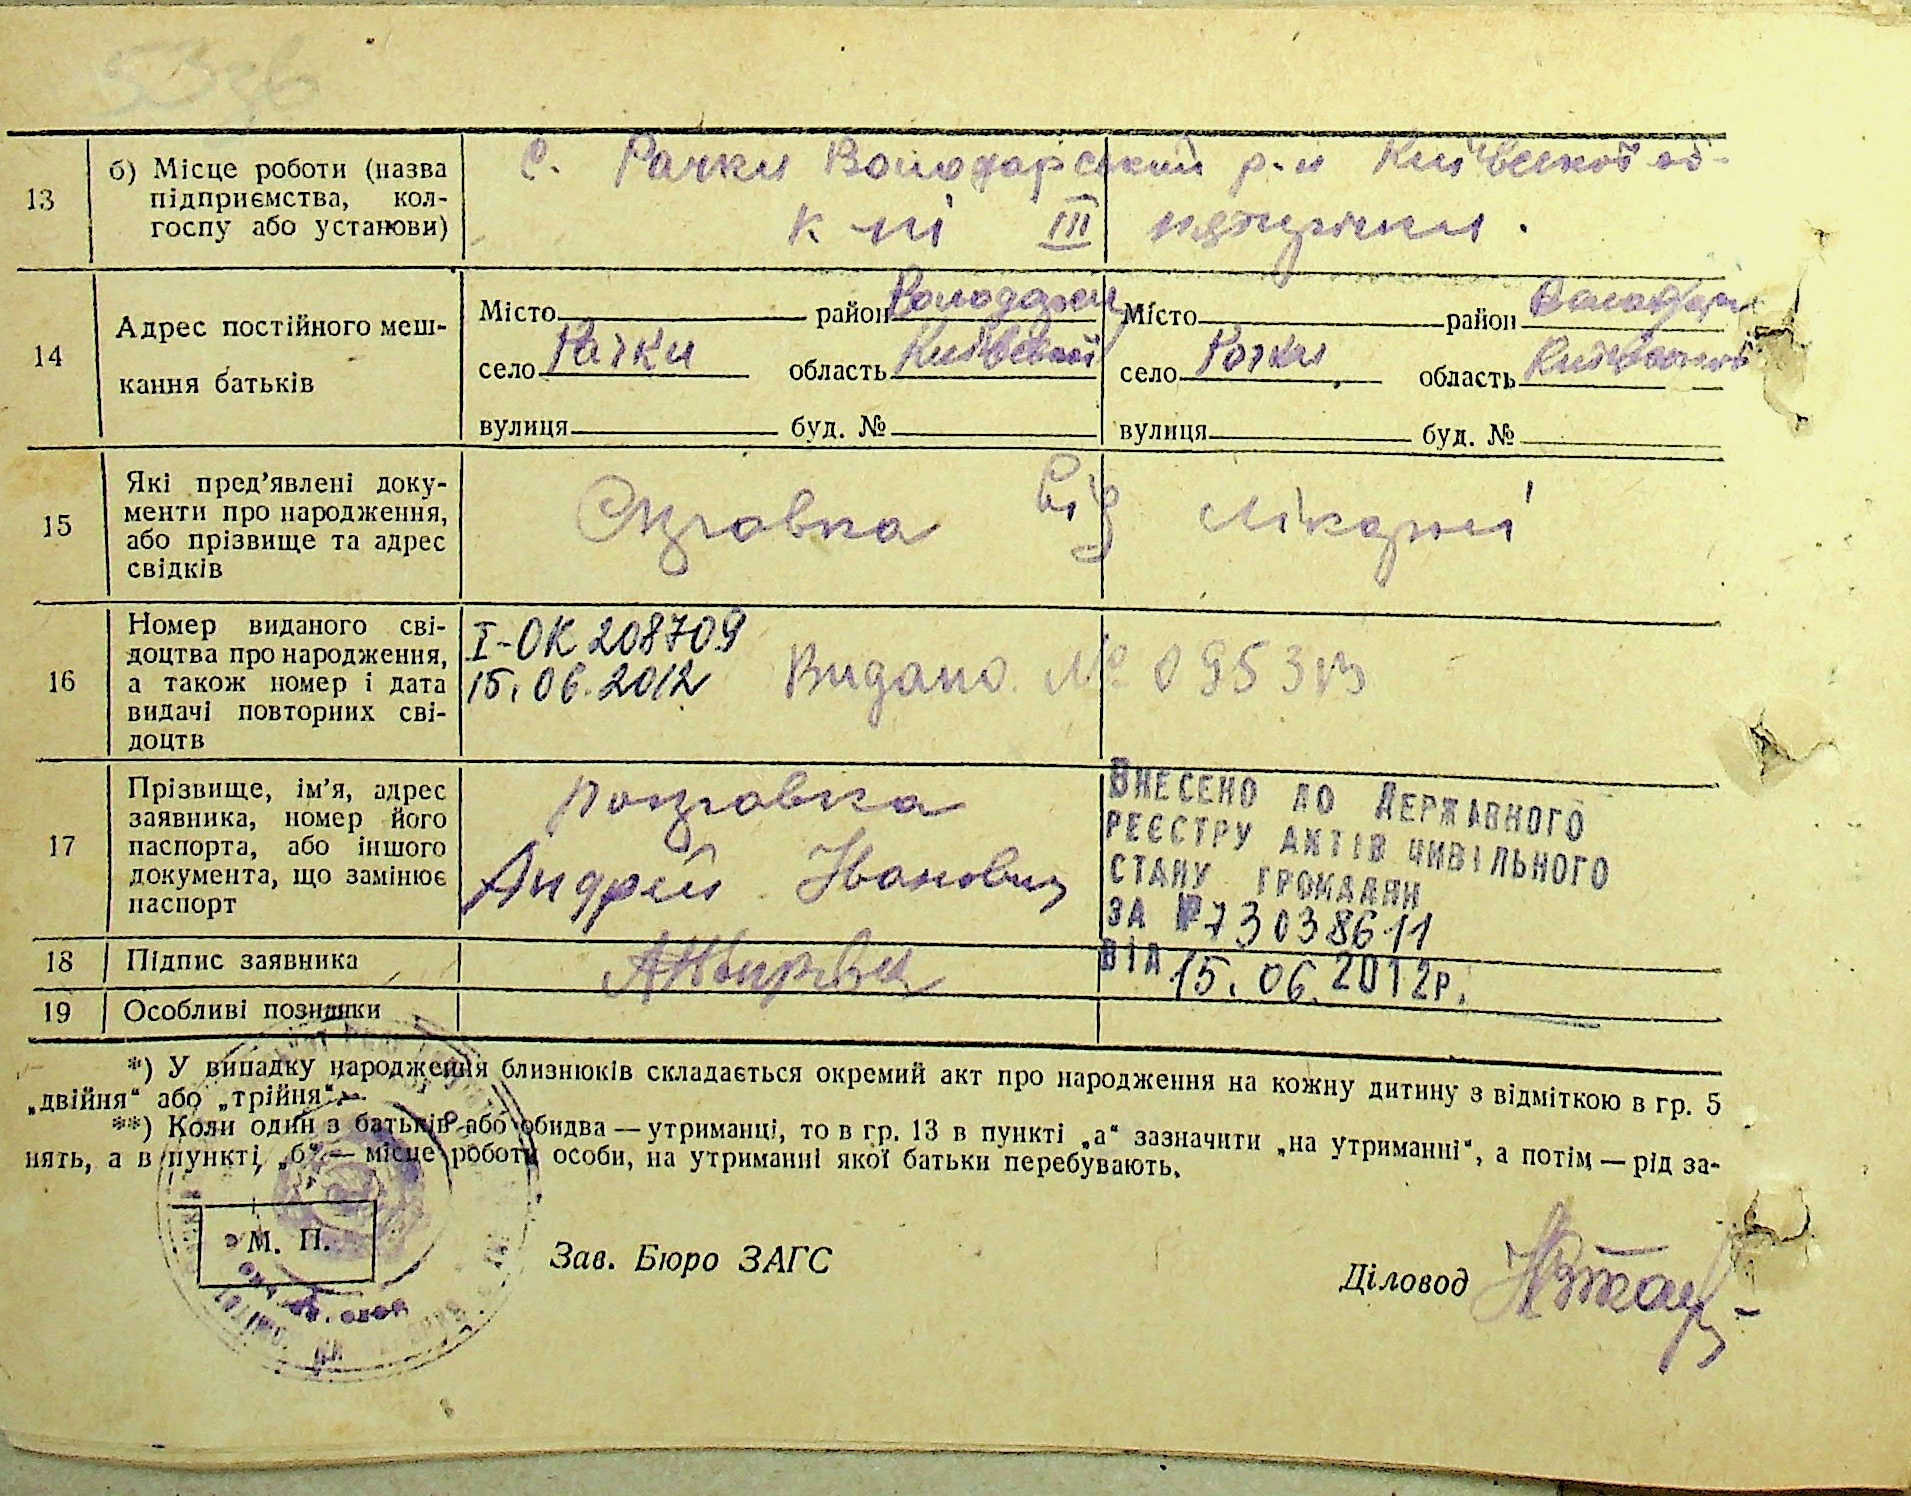 13
б) Місце роботи (назва
підприємства, кол-
госпу або установи)
с. Рачки Володарський р-н Київської об-
к мі III пятирічки.
14
Адрес постійного меш-
кання батьків
Місто район Володарськ
село Рачки область Київської
вулиця буд. №
Місто район Володарськ
село Рачки область Київської
вулиця буд. №
15
Які пред’явлені доку-
менти про народження,
або прізвище та адрес
свідків
Справка від лікарні
16
Номер виданого сві-
доцтва про народження,
а також номер і дата
видачі повторних сві-
доцтв
I-ОК 208709
15.06.2012
Видано №
17
Прізвище, ім’я, адрес
заявника, номер його
паспорта, або іншого
документа, що замінює
паспорт
Андрей Іванович
ВНЕСЕНО ДО ДЕРЖАВНОГО
РЕЄСТРУ АКТІВ ЦИВІЛЬНОГО
СТАНУ ГРОМАДЯН
ЗА № 73038611
ВІД 15.06.2012р.
18
Підпис заявника
19
Особливі позначки
*) У випадку народження близнюків складається окремий акт про народження на кожну дитину з відміткою в гр. 5
„двійня“ або „трійня“.
**) Коли один з батьків або обидва — утриманці, то в гр. 13 в пункті „а“ зазначити „на утриманні“, а потім — рід за-
нять, а в пункті „б“ — місце роботи особи, на утриманні якої батьки перебувають.
М. П.
Зав. Бюро ЗАГС
Діловод